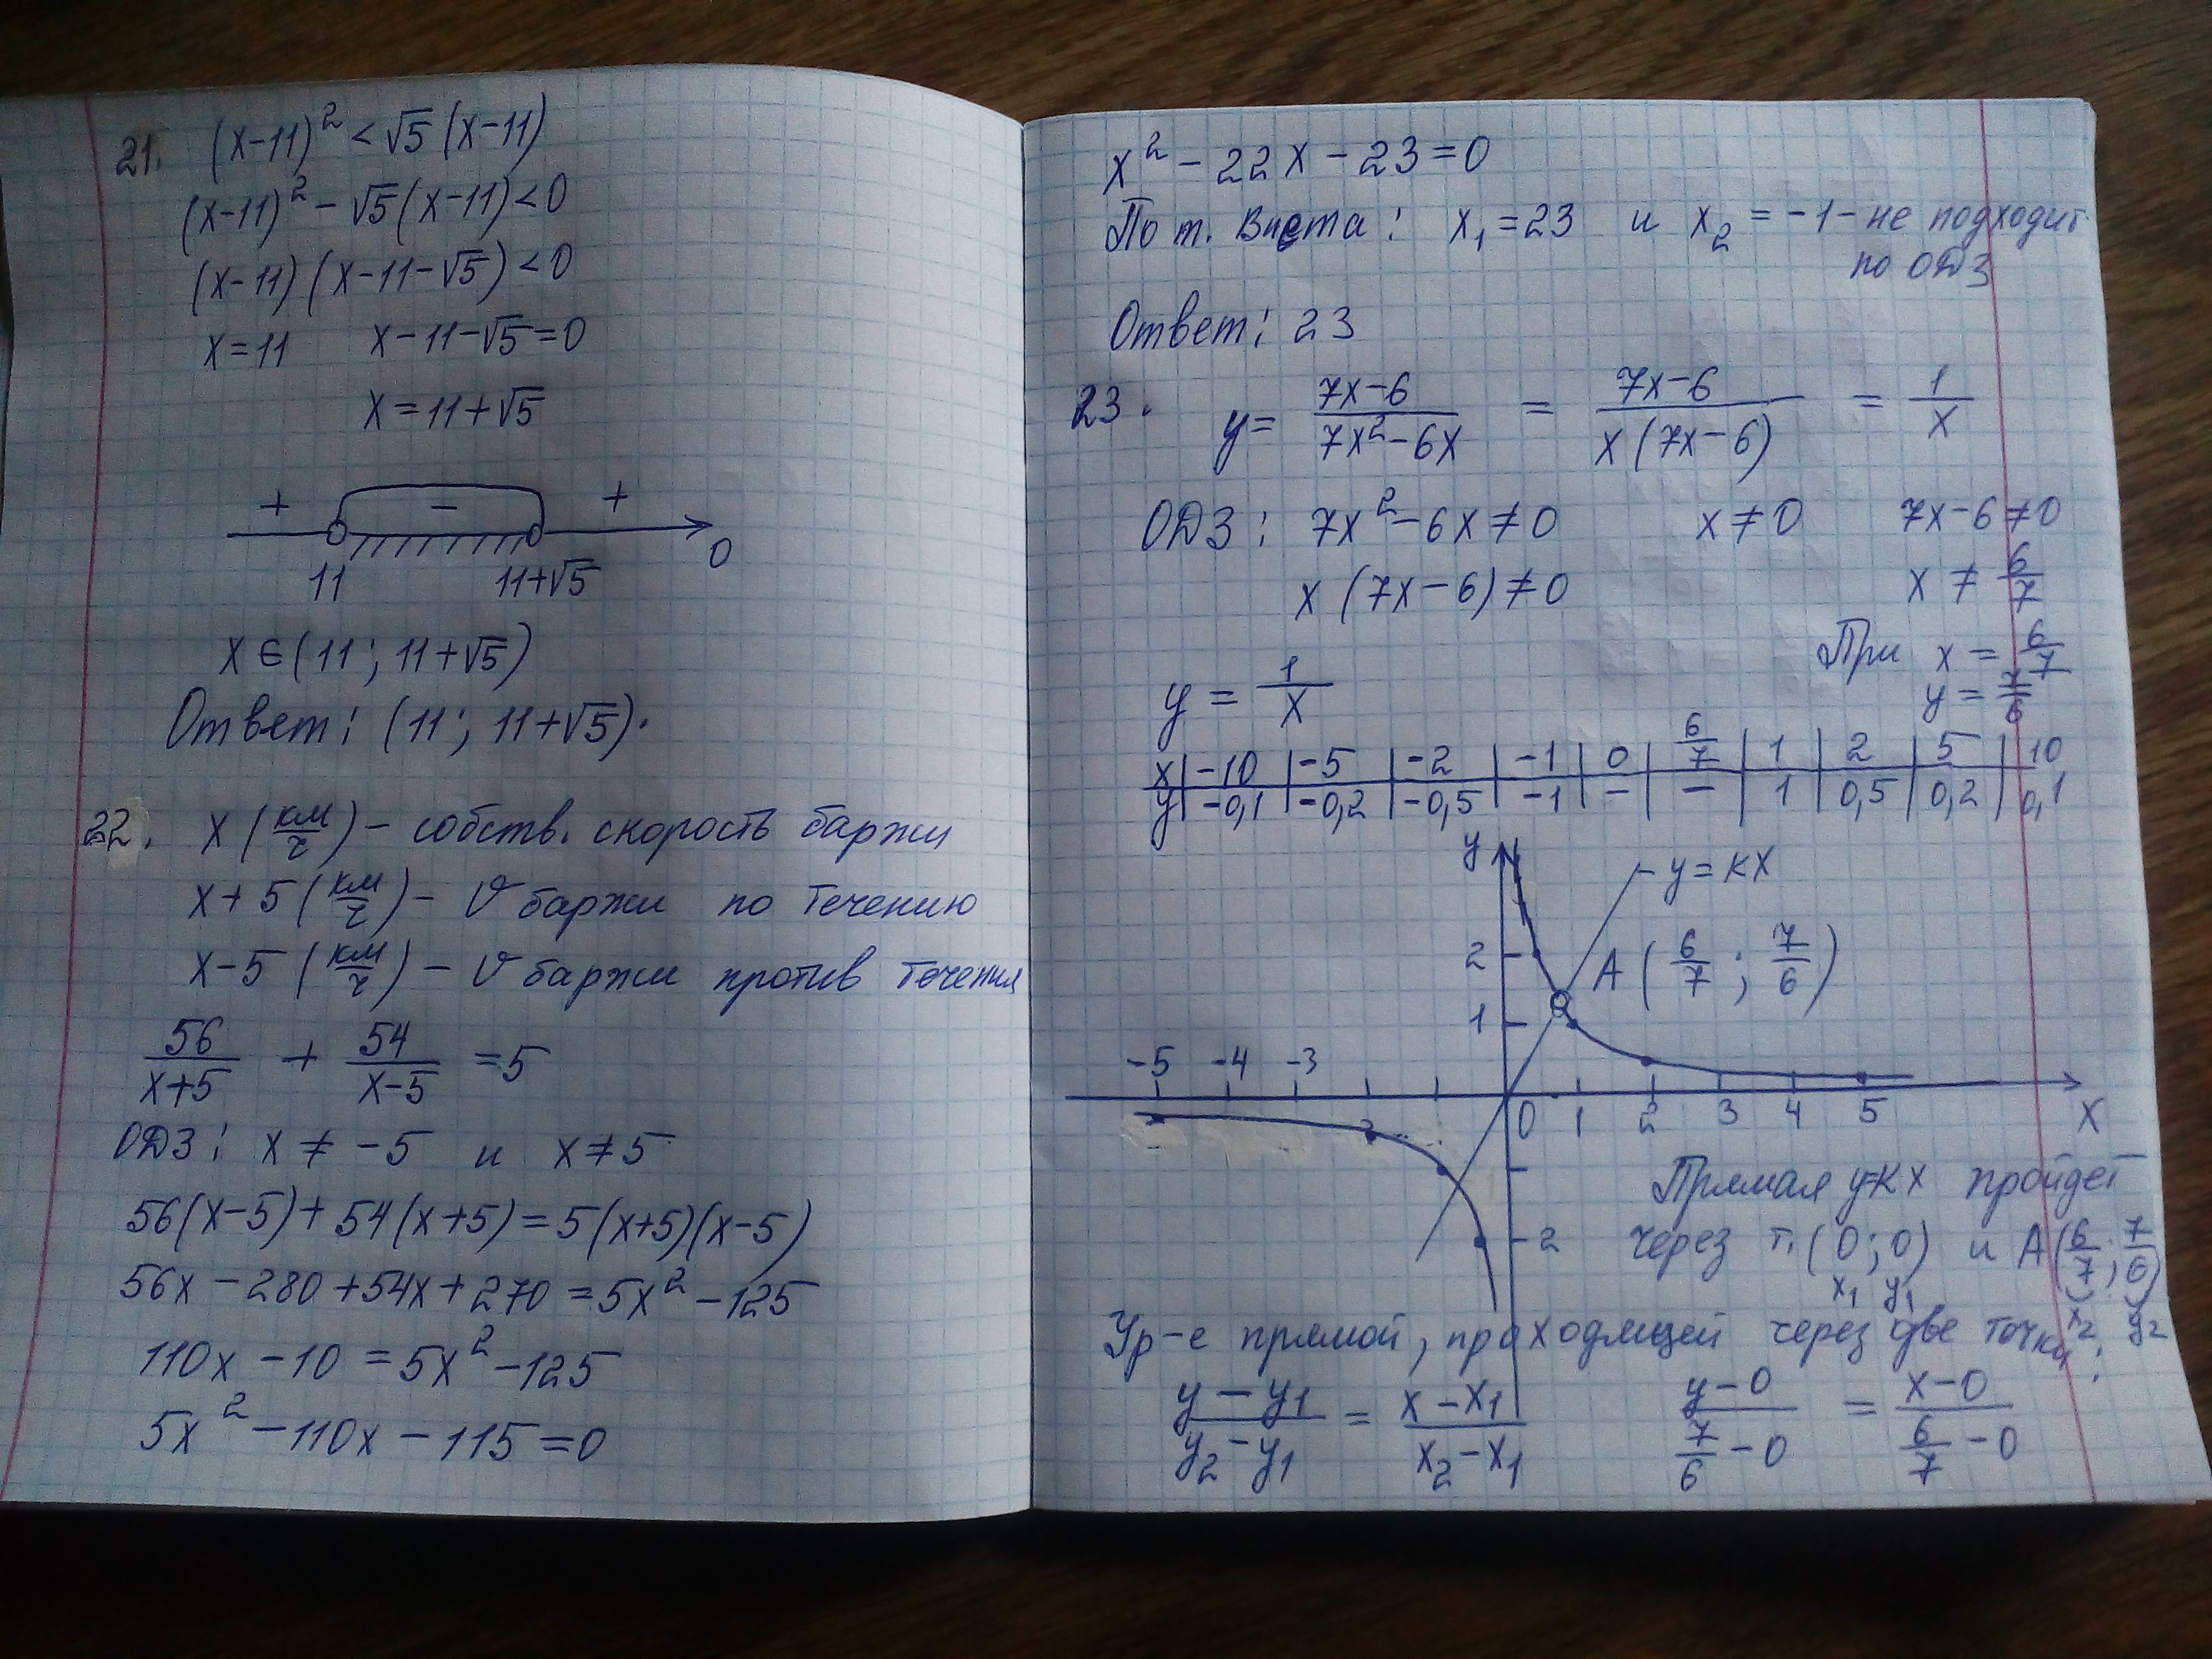 21. (x-11)² < √5 (x-11)
(x-11)² - √5 (x-11) < 0
(x-11) (x-11-√5) < 0
x=11 x-11-√5=0
x=11+√5
+ - +
11 11+√5 0
x ∈ (11; 11+√5)
Ответ: (11; 11+√5).
22. x (км/ч) - собств. скорость баржи
x+5 (км/ч) - V баржи по течению
x-5 (км/ч) - V баржи против течения
56/(x+5) + 54/(x-5) = 5
ОДЗ: x ≠ -5 и x ≠ 5
56(x-5) + 54(x+5) = 5(x+5)(x-5)
56x - 280 + 54x + 270 = 5x² - 125
110x - 10 = 5x² - 125
5x² - 110x - 115 = 0
x² - 22x - 23 = 0
По т. Виета: x₁ = 23 и x₂ = -1 - не подходит
по ОДЗ
Ответ: 23
23. y = (7x-6)/(7x²-6x) = (7x-6)/(x(7x-6)) = 1/x
ОДЗ: 7x²-6x ≠ 0 x ≠ 0 7x-6 ≠ 0
x (7x-6) ≠ 0 x ≠ 6/7
При x = 6/7
y = 1/x y = 7/6
x | -10 | -5 | -2 | -1 | 0 | 6/7 | 1 | 2 | 5 | 10
y | -0,1 | -0,2 | -0,5 | -1 | - | - | 1 | 0,5 | 0,2 | 0,1
y y = kx
2 A (6/7; 7/6)
1
-5 -4 -3
0 1 2 3 4 5 x
Прямая y=kx пройдет
-2 через т. (0; 0) и A(6/7; 7/6)
x₁ y₁ x₂ y₂
Ур-е прямой, проходящей через две точки:
(y-y₁)/(y₂-y₁) = (x-x₁)/(x₂-x₁) (y-0)/(7/6-0) = (x-0)/(6/7-0)